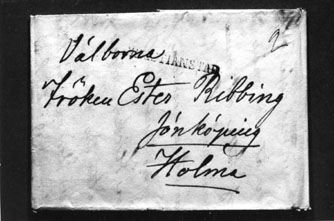 Välborna
Fröken Ester Ribbing
Jönköping
Holma
2